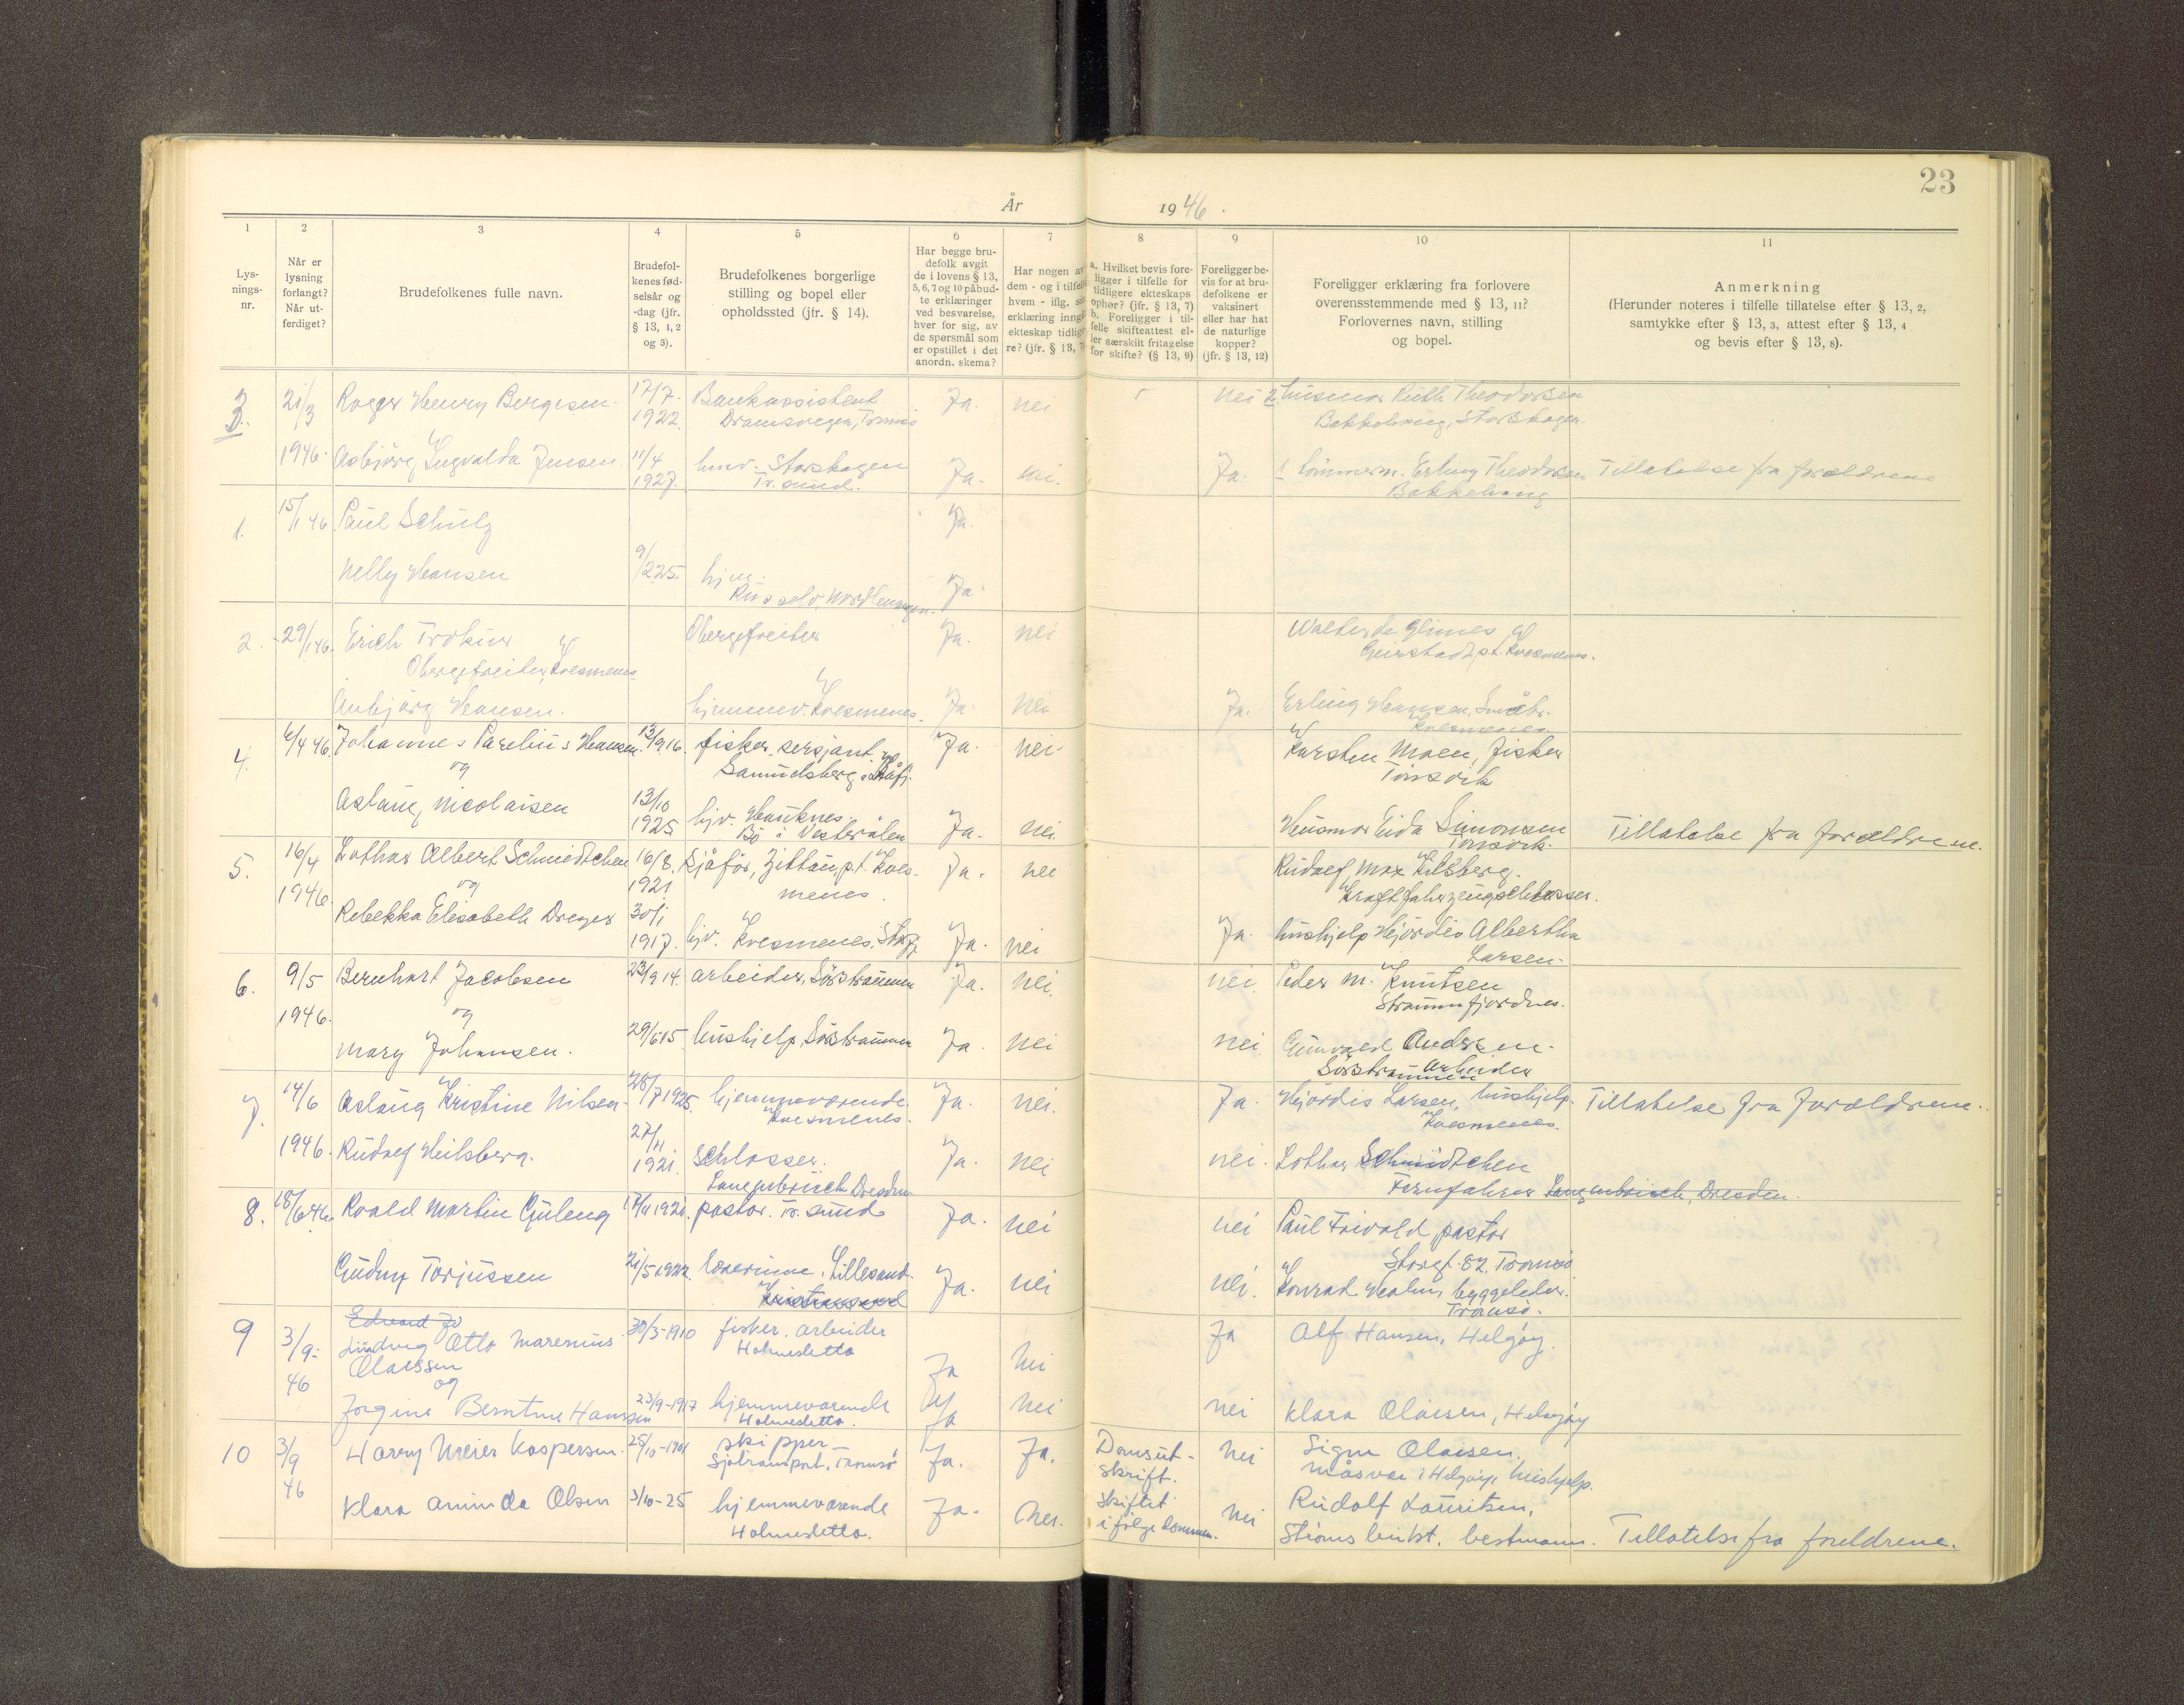 23
År 1946.
1
2
3
4
5
6
7
8
9
10
11
Lys-
nings-
nr.
Når er
lysning
forlangt?
Når ut-
ferdiget?
Brudefolkenes fulle navn.
Brudefol-
kenes fød-
selsår og
-dag (jfr.
§ 13, 1, 2
og 3).
Brudefolkenes borgerlige
stilling og bopel eller
opholdssted (jfr. § 14).
Har begge bru-
defolk avgit
de i lovens § 13,
5, 6, 7 og 10 påbud-
te erklæringer
ved besvarelse,
hver for sig, av
de spørsmål som
er opstillet i det
anordn. skema?
Har nogen av
dem - og i tilfelle
hvem - iflg. sin
erklæring inngå
ekteskap tidlige-
re? (jfr. § 13, 7)
a. Hvilket bevis fore-
ligger i tilfelle for
tidligere ekteskaps
ophør? (jfr. § 13, 7)
b. Foreligger i til-
felle skifteattest el-
ler særskilt fritagelse
for skifte? (§ 13, 9)
Foreligger be-
vis for at bru-
defolkene er
vaksinert
eller har hat
de naturlige
kopper?
(jfr. § 13, 12)
Foreligger erklæring fra forlovere
overensstemmende med § 13, 11?
Forlovernes navn, stilling
og bopel.
Anmerkning
(Herunder noteres i tilfelle tillatelse efter § 13, 2,
samtykke efter § 13, 3, attest efter § 13, 4
og bevis efter § 13, 8).
3.
21/3
1946.
Roger Henry Bergesen.
17/7.
1922.
Bankassistent
Dramsvegen, Tromsø
Ja.
nei
nei
2 husmor Ruth Theodorsen
Bakkehaug, Storskogen.
Asbjørg Ingvalda Jensen.
11/4
1927.
hmv. Storskogen
Tr.sund.
Ja.
nei.
Ja.
1 tømmerm. Erling Theodorsen
Bakkehaug
Tillatelse fra foreldrene
1.
15/1 46.
Paul Schulz
Ja.
Nelly Hansen
9/2 25.
hjm.
Ja.
2.
29/1 46.
Erich
Obergefreiter, Koesmenes
Obergefreiter
Ja.
nei
Walter de
Geirstad p.t. Koesmenes.
Anbjørg Hansen.
hjemmev. Koesmenes.
Ja.
nei
Ja.
Erling Hansen, Småbr.
Koesmenes
4.
6/4 46.
Johannes Parelius Hansen.
og
13/9 16.
fisker, sersjant.
Samuelsberg i
Ja.
nei
Karsten Moen, fisker
Tønsvik
Aslaug Nicolaisen
13/10
1925
hjv. Hauknes.
Bø i Vesterålen
Ja.
nei
Husmor Simonsen
Tønsvik.
Tillatelse fra foreldrene.
5.
16/4
1946.
Lothar Albert Schmiedtchen
og
16/8.
1921
Sjåfør, Zittau p.t. Koes-
menes.
Ja.
nei
Rudolf Max Hilsberg.
Kraftfahrzeugschlosser.
Rebekka Elisabeth Dreyer
30/1
1917.
hjv. Koesmenes, Storfj.
Ja.
nei
Ja.
hushjelp Hjørdis Albertha
Larsen.
6.
9/5
1946.
Bernhart Jacobsen
og
23/9 14.
arbeider, Sørstraumen
Ja.
nei.
nei.
Peder M. Knutsen
Straumfjordnes.
Mary Johansen.
29/6 15.
hushjelp, Sørstraumen
Ja.
nei
nei.
Gunvald Andersen.
Sørstraumen Arbeider
7.
14/6
1946.
Aslaug Kristine Nilsen
28/7 1925.
hjemmeværende.
Koesmenes.
Ja.
nei.
Ja.
Hjørdis Larsen, hushjelp.
Koesmenes.
Tillatelse fra foreldrene.
Rudolf Hilsberg.
27/11
1921.
Schlosser.
Langenbrück Dresden
Ja.
nei
nei.
Lothar Schmidtchen
Fernfahrer Langenbrück, Dresden.
8.
18/6 46.
Roald Martin Guleng
17/11 1921.
pastor. Tr.sund
Ja.
nei
nei
Paul Frivold pastor
Storgt. 82, Tromsø
Gudny Torjussen
21/5 1922.
lærerinne. Lillesand.
Kristiansand
Ja.
nei
nei.
Konrad Holm, byggeleder.
Tromsø.
9
3/9.
46
Edvard Jo
Ludvig Otto Marenius
Olaissen
og
30/3-1910
fisker. arbeider
Holmesletta
Ja
nei
Ja
Alf Hansen, Helgøy.
Jorgine Berntine Hanssen
23/9-1917
hjemmeværende
Holmesletta.
Ja
nei
nei
Klara Olaisen, Helgøy
10
3/9
46
Harry Meier Kaspersen.
25/10-1904
skipper
Sjøtransport. Tromsø
Ja.
Ja.
Domsut-
skrift.
nei
Signe Olaisen,
Måsvær i Helgøy, hushjelp.
Klara Aminda Olsen
3/10-25
hjemmeværende
Holmesletta.
Ja.
nei.
skiftet
i følge dommen.
nei
Rudolf Lauritsen,
bestmann.
Tillatelse fra foreldrene.